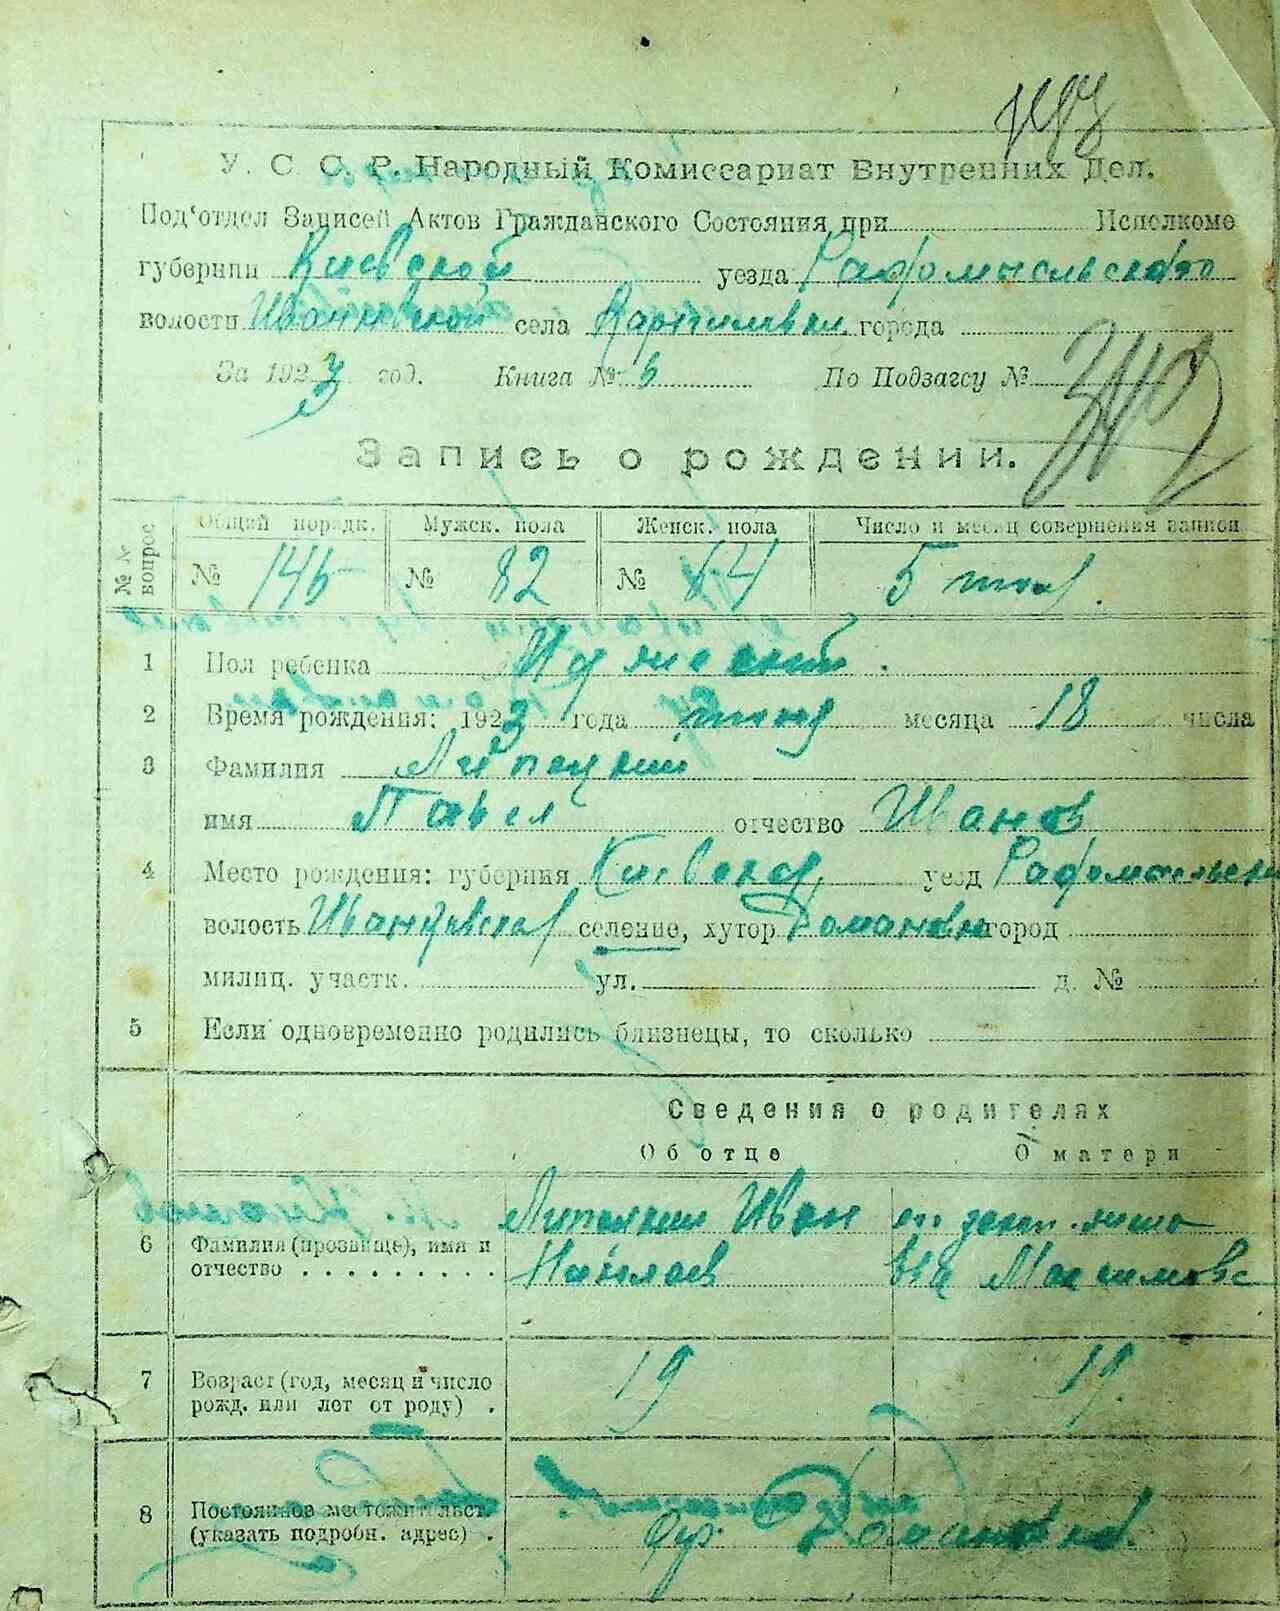 У. С. С. Р. Народный Комиссариат Внутренних Дел.
Под'отдел Записей Актов Гражданского Состояния при Исполкоме
губернии Киевской уезда Радомысльского
волости села города
За 1923 год. Книга № 6 По Подзагсу №
Запись о рождении.
№ № вопрос
Общий порядк. Мужск. пола Женск. пола Число и месяц совершения записи
№ 146 № 82 № 64 5
1 Пол ребенка Мужской.
2 Время рождения: 1923 года месяца 18 числа
3 Фамилия
имя Павел отчество Иванов
4 Место рождения: губерния Киевская уезд
волость селение, хутор Романовка город
милиц. участк. ул. д. №
5 Если одновременно родились близнецы, то сколько
Сведения о родителях
Об отце О матери
6 Фамилия (прозвище), имя и отчество Иван Николаев Максимовс
7 Возраст (год, месяц и число рожд. или лет от роду) . 19 19.
8 Постоянное местожительст. (указать подробн. адрес) . Романовка.